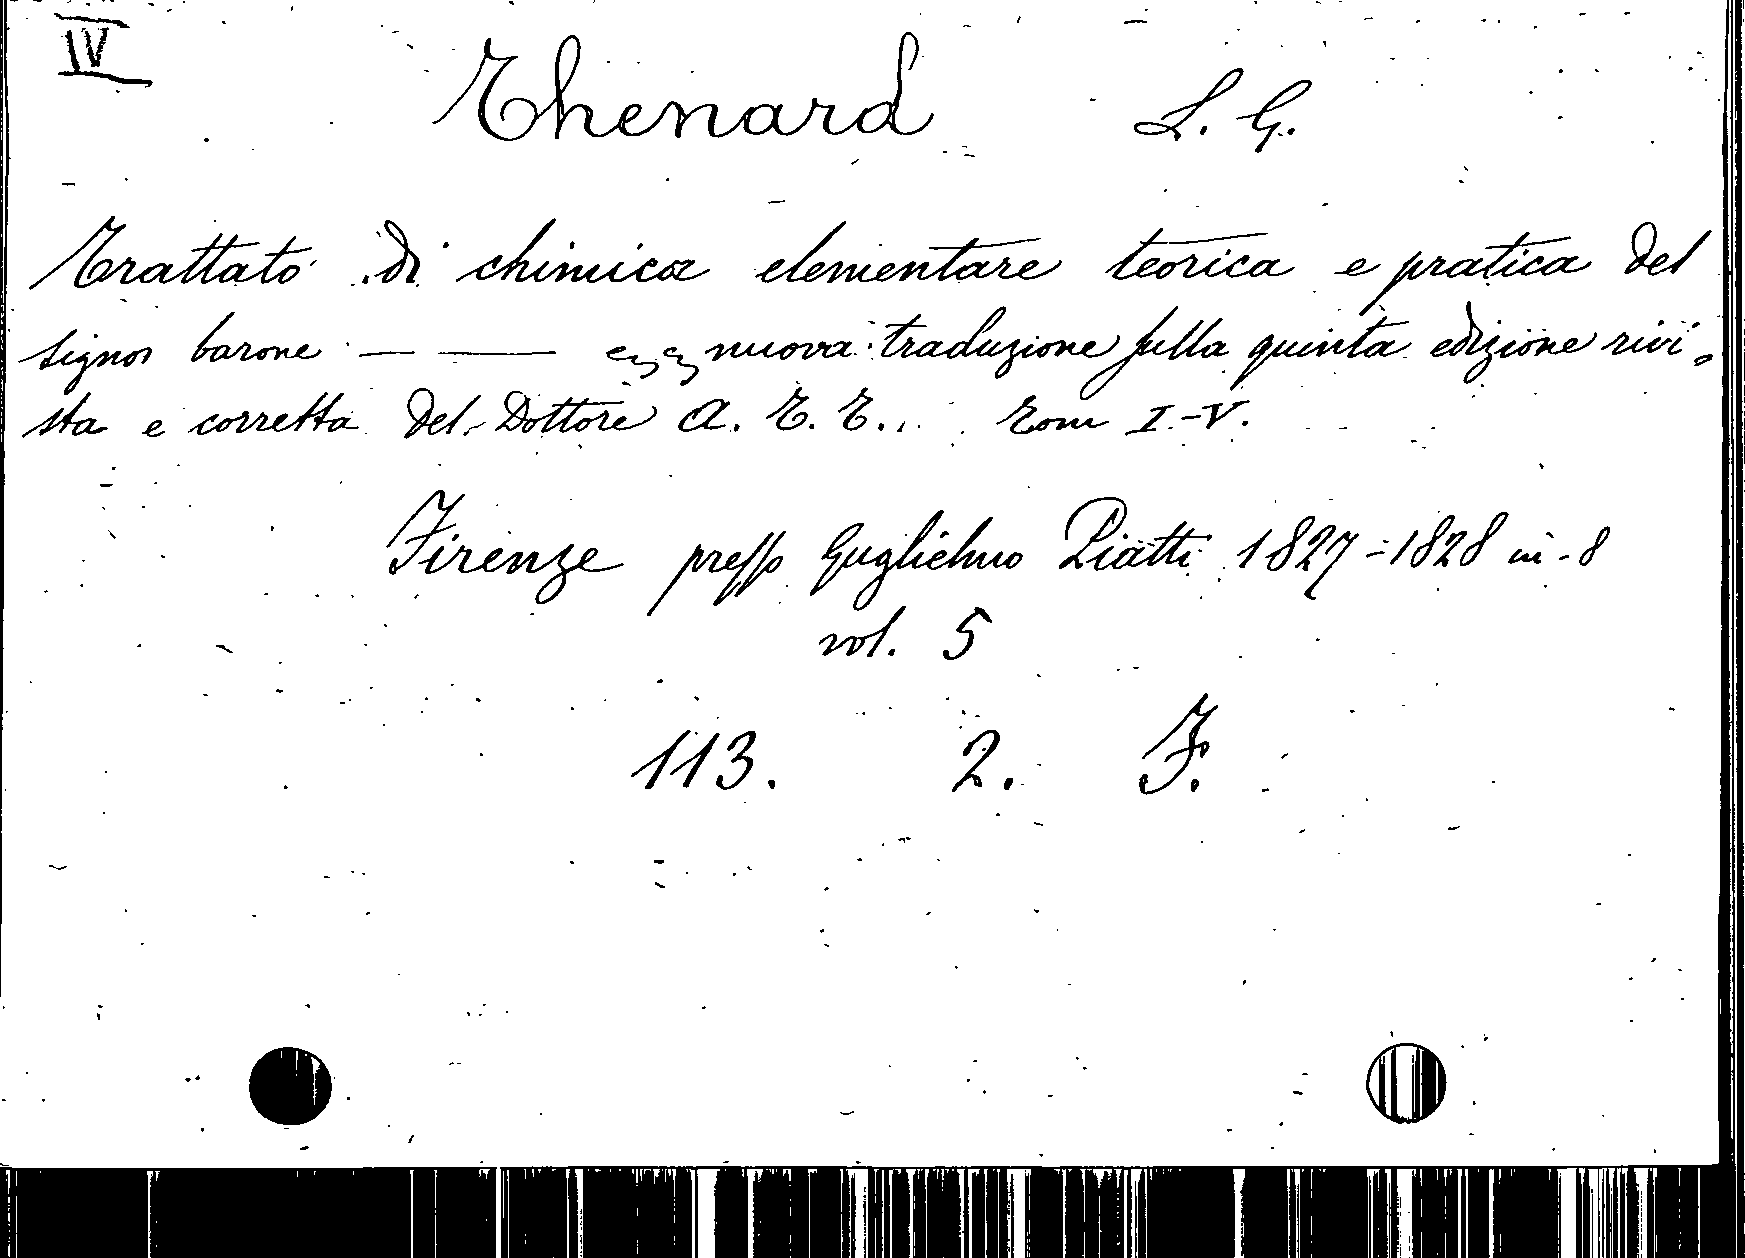 IV
Thenard L. G.
Trattato di chimica elementare teorica e pratica del
signor barone — — nuova traduzione sulla quinta edizione rivi-
sta e corretta del Dottore A. T. T... Tom I-V.
Firenze presso Guglielmo Piatti 1827-1828 in-8
vol. 5
113. 2. F.